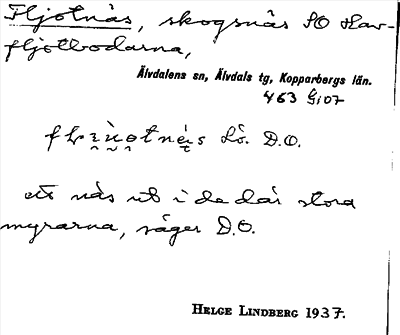 Fljotnäs, skogsnäs SO Hav-
fljotbodarna,
Älvdalens sn, Älvdals tg, Kopparbergs län.
463 Gi07
Lö. D.O.
ett näs ut i de där stora
myrarna, säger D.O.
HELGE LINDBERG 1937.